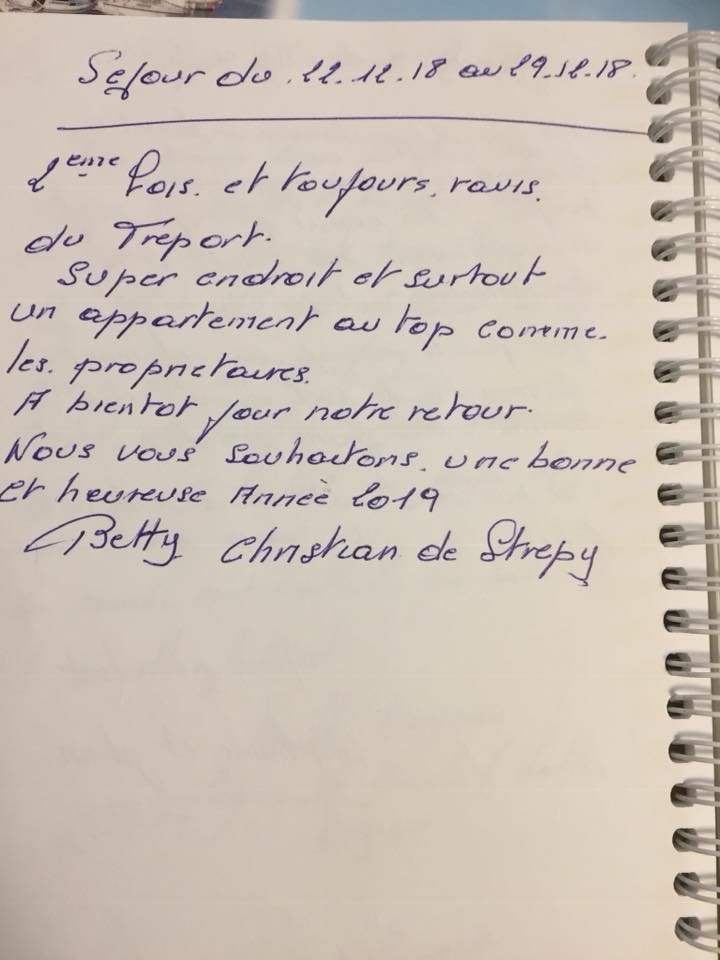 Sejour du 22.12.18 au 29.12.18.
2eme fois. et toujours. ravis.
du Treport.
Super endroit et surtout
un appartement au top comme.
les. proprietaires.
A bientot pour notre retour.
Nous vous souhaitons. une bonne
et heureuse Année 2019
Betty Christian de Strepy